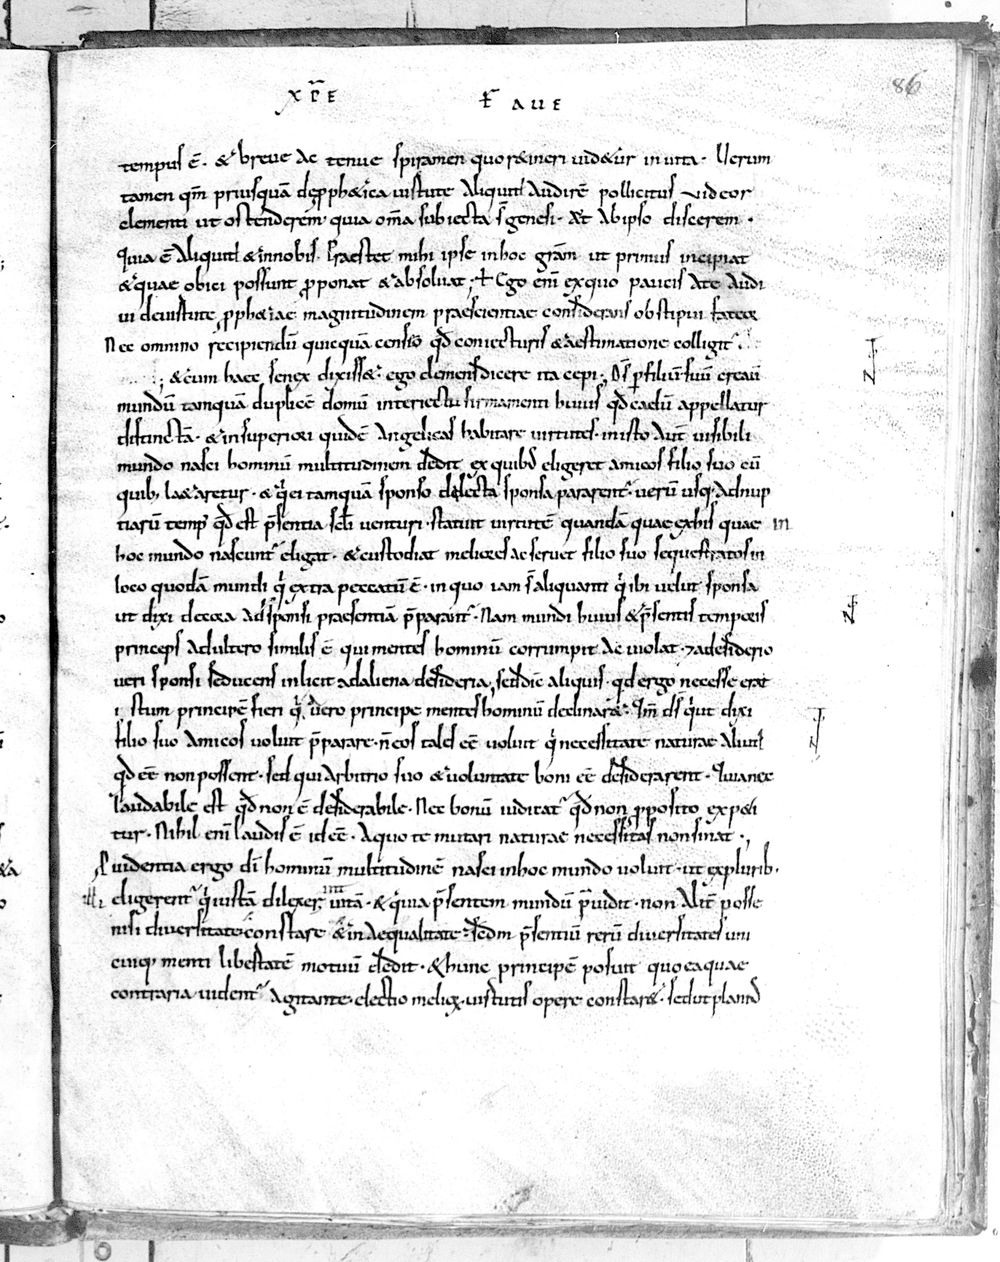 XPE FAUE
86
tempus ē. & breue ac tenue spiramen quo retineri uidetur in uita. Uerum
tamen qm̄ priusquā de pphetica uirtute aliquid audirē pollicitus uideor
clementi ut ostenderem quia om̄a subiecta s̄ genesi. Et ab ipso discerem.
Quia ē aliquid & in nobis. Praestet mihi ipse in hoc grām ut primus incipiat
& quae obici possunt pponat & absoluat; Ego enī ex quo paucis a te audi
ui de uirtute pphetiae magnitudinem praescientiae considerans obstipui fateor
Nec omnino recipiendū quicquā censeo qd coniecturis & aestimatione colligit̄
; & cum haec senex dixisset ego clemens dicere ita cepi; Ds̄ p filiū suū creauit
mundū tamquā duplicē domū interiectu firmamenti huius qd caelū appellatur
distinctā. & in superiori quidē angelicas habitare uirtutes. in isto aut̄ uisibili
mundo nasci hominū multitudinem dedit ex quib; eligeret amicos filio suo cū
quib; laetaretur. & q̄ ei tamquā sponso dilecta sponsa pararent̄. uerū usq; ad nup
tiarū temp; qd est p̄sentia scl̄i uenturi. statuit uirtutē quandā quae ex his quae in
hoc mundo nascunt̄ eligat. & custodiat meliores ac seruet filio suo sequestratos in
loco quodā mundi q̄ extra peccatū ē. in quo iam s̄ aliquanti q̄ ibi uelut sponsa
ut dixi decora ad sponsi praesentiā p̄parant̄. Nam mundi huius & p̄sentis temporis
princeps adultero similis ē qui mentes hominū corrumpit ac uiolat. 7 a desiderio
ueri sponsi seducens inlicit ad aliena desideria; sed dic̄ aliquis. qd ergo necesse erat
istum principē fieri q̄ a uero principe mentes hominū declinaret. Im̄ ds̄ q̄ ut dixi
filio suo amicos uoluit p̄parare. n̄ eos tales eē uoluit q̄ necessitate naturae aliud
qd eē non possent. sed qui arbitrio suo & uoluntate boni eē desiderarent. Quia nec
laudabile est qd non ē desiderabile. Nec bonū iudicat̄ qd non pposito expeti
tur. Nihil enī laudis ē id eē. A quo te mutari naturae necessitas non sinat.;
Puidentia ergo dī hominū multitudinē nasci in hoc mundo uoluit. ut ex plurib;
eligerent̄ q̄ iustā diligerent uitā. & q̄ia p̄sentem mundū p̄uidit. non alit̄ posse
nisi diuersitate constare & inaequalitate. sedm p̄sentiū rerū diuersitates uni
cuiq; menti libertatē motuū dedit. & hunc principē posuit quo ea quae
contraria uident̄ agitante. electio melior. uirtutis opere constaret. sed ut planius